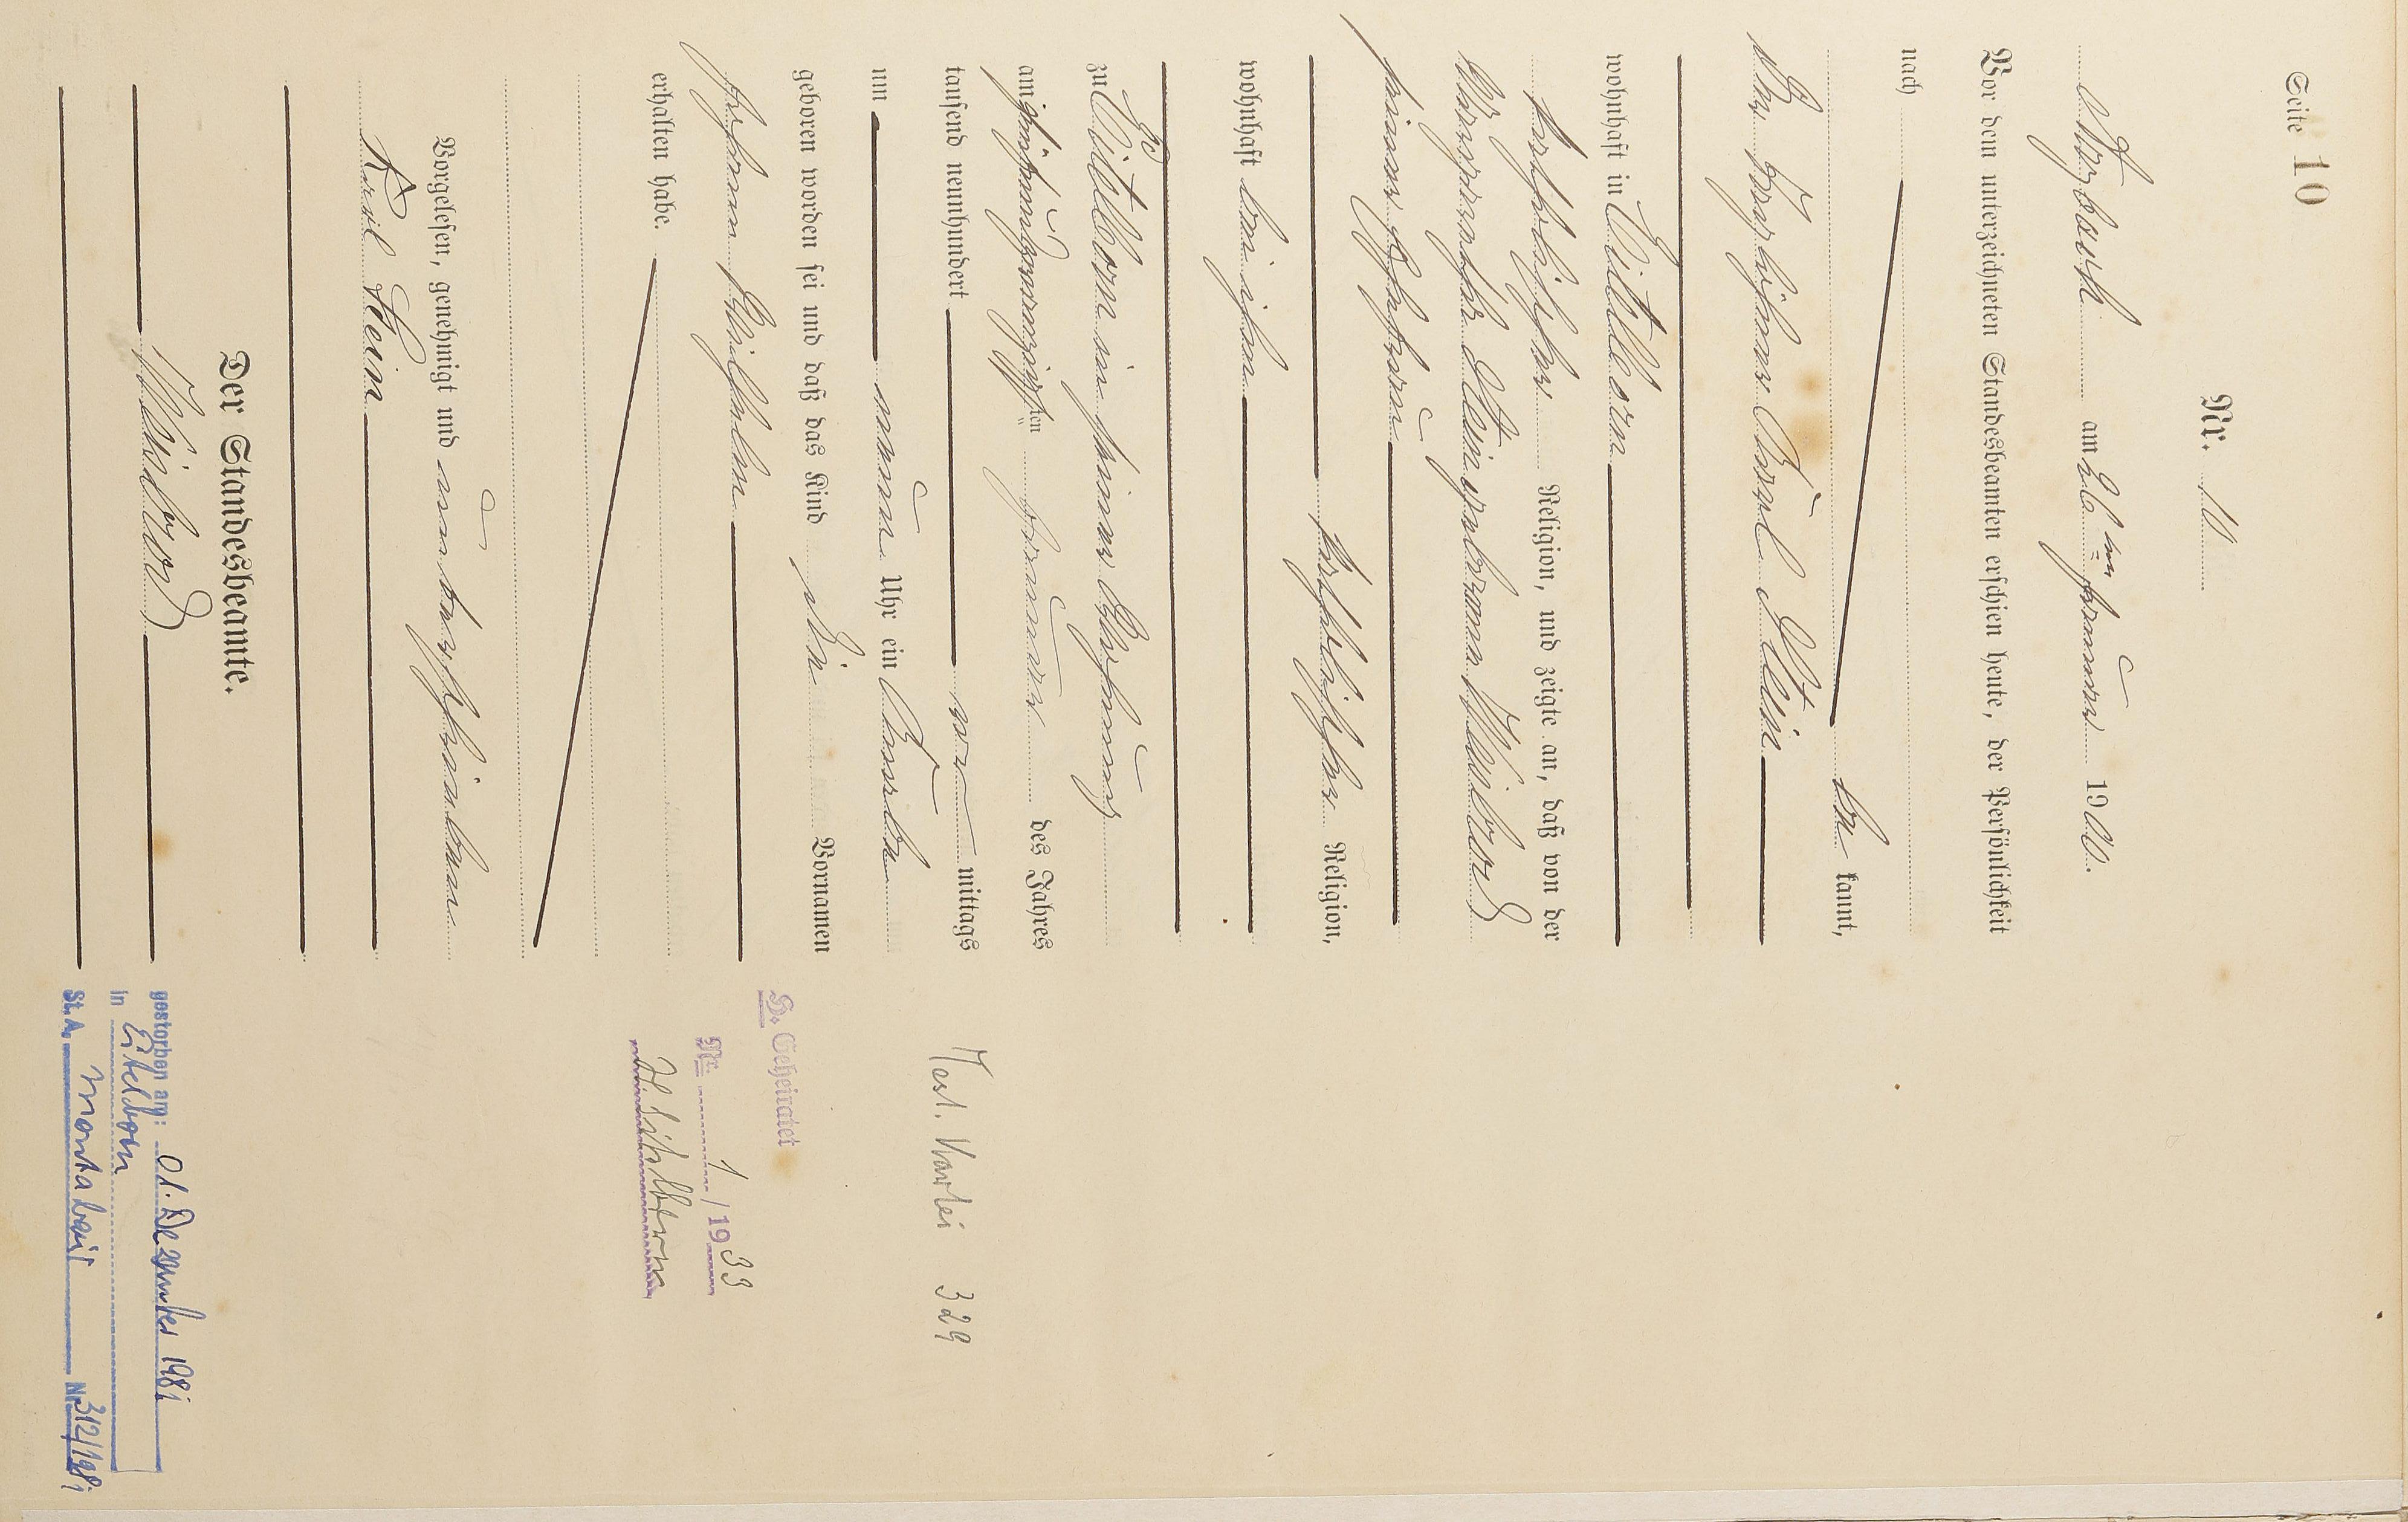 Seite 10
Nr. 10
Arzbach am 26ten Januar 1900.
Vor dem unterzeichneten Standesbeamten erschien heute, der Persönlichkeit
nach
be kannt,
Der Karl Stein
wohnhaft in Eitelborn
katholischer Religion, und zeigte an, daß von der
Stein geborenen Meibord
seiner Ehefrau
katholischer Religion,
wohnhaft bei ihm
zu Eitelborn in seiner Wohnung
am fünfundzwanzigsten Januar des Jahres
tausend neunhundert vor mittags
um neun Uhr ein Knabe
geboren worden sei und daß das Kind die Vornamen
Johann Wilhelm
erhalten habe.
Vorgelesen, genehmigt und unterschrieben
Karl Stein
Der Standesbeamte.
Meibord
Test. Kartei 329
H. Geheiratet
Nr. 1/1933
Eitelborn
gestorben am: 01. Dezember 1981
in Eitelborn
St.A. Montabaur Nr. 312/1981